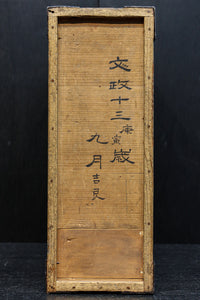 文政十三庚寅歳
九月吉良